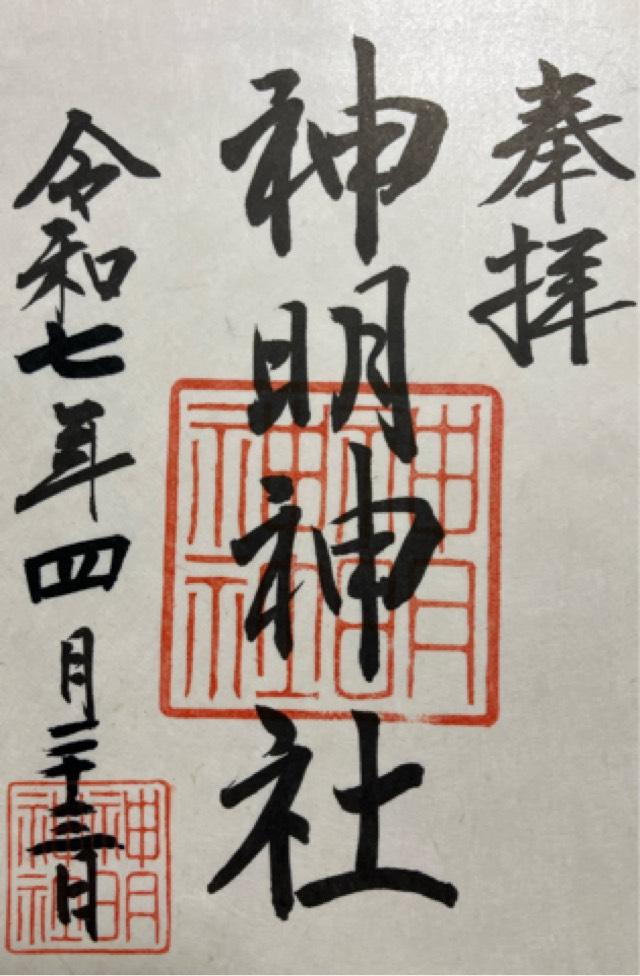 奉拝
神明神社
神明
神社
令和七年四月二十三日
神明
神社